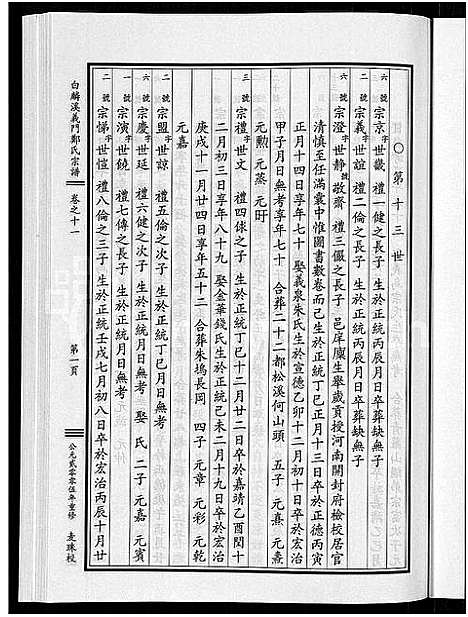 ○第十三世
一號 宗京 字世畿 禮一健之長子 生於正統丙辰月日卒葬缺無子
二號 宗義 字世誼 禮二倫之長子 生於正統丙辰月日卒葬缺無子
六號 宗澄 字世靜 號敬齋 禮三儼之長子 邑庠廩生舉歲貢授河南開封府檢校居官
清慎至任滿囊中惟圖書數卷而已生於正統丁巳正月十三日卒於正德丙寅
正月十四日享年七十 娶義泉朱氏生於宣德乙卯十二月初十日卒於
甲子月日無考享年七十 合葬二十二都松溪何山頭 五子 元熹 元燾
元勳 元蒸 元旰
三號 宗禮 字世文 禮四俅之子 生於正統丁巳十二月廿二日卒於嘉靖乙酉閏十
二月初三日享年八十九 娶金華錢氏生於正統己未二月十九日卒於宏治
庚戌十一月廿四日享年五十二 合葬朱塢長岡 四子 元章 元彩 元乾
元嘉
二號 宗盟 字世諒 禮五倫之次子 生於正統丁巳月日無考
六號 宗慶 字世延 禮六健之次子 生於正統月日無考 娶 氏 二子 元嘉 元賓
一號 宗演 字世饒 禮七傳之長子 生於正統月日無考
二號 宗悌 字世愷 禮八倫之三子 生於正統壬戌七月初八日卒於宏治丙辰十月廿
白麟溪義門鄭氏宗譜 卷之十一 第一頁 公元貳零零伍年重修 走珠校